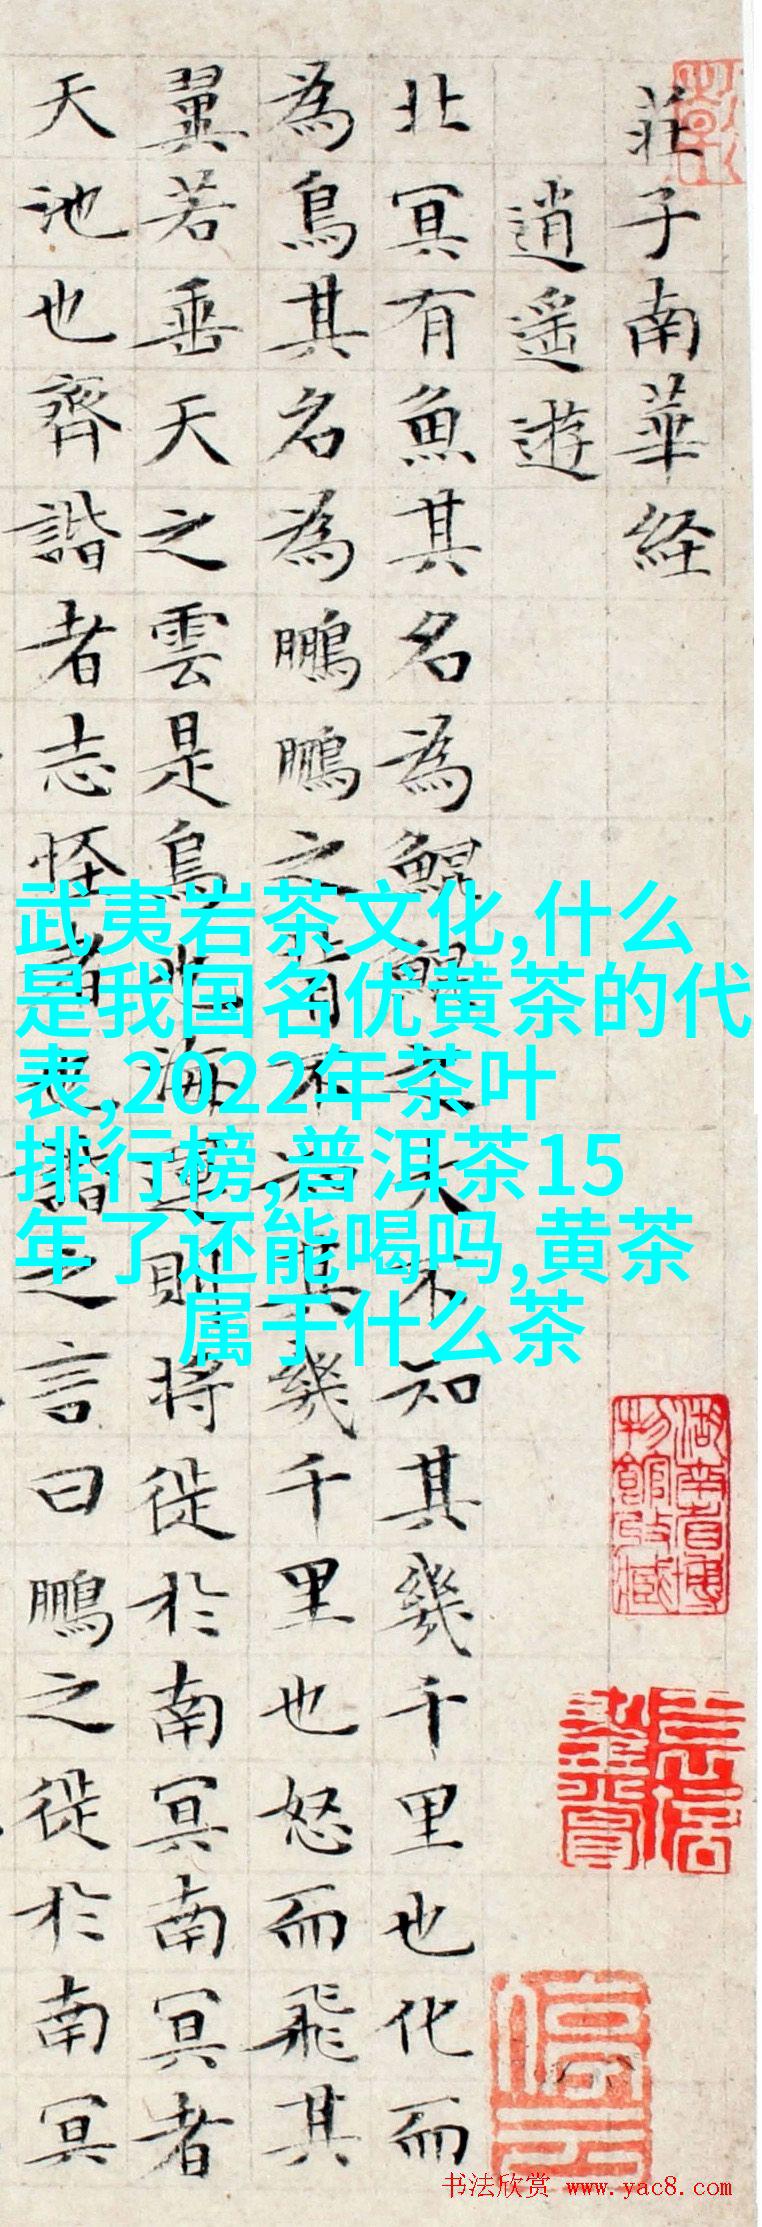 莊子南華経
逍遥遊
北冥有魚其名為鯤鯤之大不知其幾千里也化而
為鳥其名為鵬鵬之背不知其幾千里也怒而飛其
翼若垂天之雲是鳥也海運則將徙於南冥南冥者
天池也齊諧者志怪者也諧之言曰鵬之徙於南冥
武夷岩茶文化,什么
是我国名优黄茶的代
表,2022年茶叶
排行榜,普洱茶15
年了还能喝吗,黄茶
属于什么茶
湖南省博
物館收藏
停云
书法欣赏 www.yac8.com